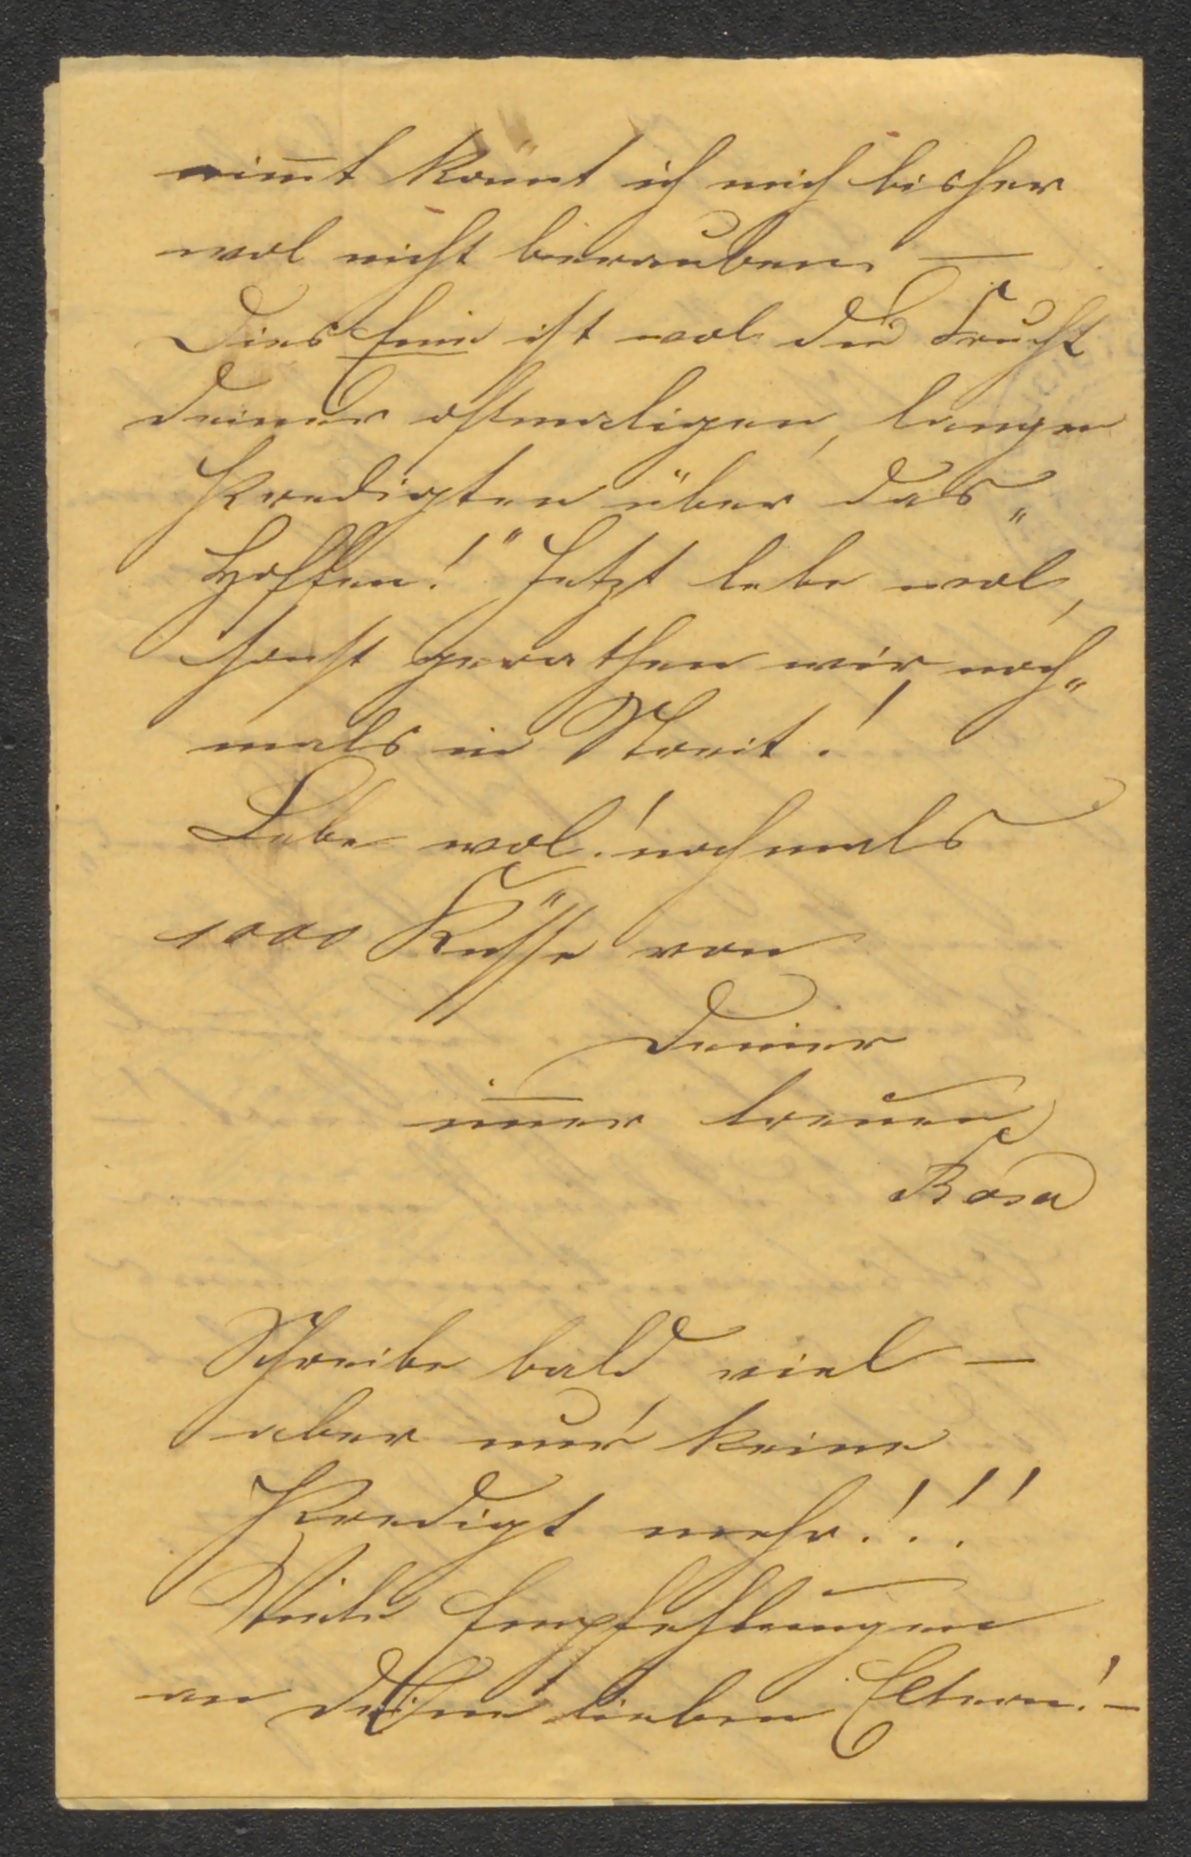 nim̅t kon̅t ich mich bisher
wol nicht berauben. —
Dies Eine ist wol die Frucht
deiner oftmaligen, langen
Predigten über das „
Hoffen!“ Jetzt lebe wol,
sonst gerathen wir noch„
mals in Streit!
Lebe wol! nochmals
1000 Küsse von
Deiner
im̅er treuen
Rosa
Schreibe bald viel —
aber nur keine
Predigt mehr!!!
Viele Empfehlungen
an Deine lieben Eltern! —